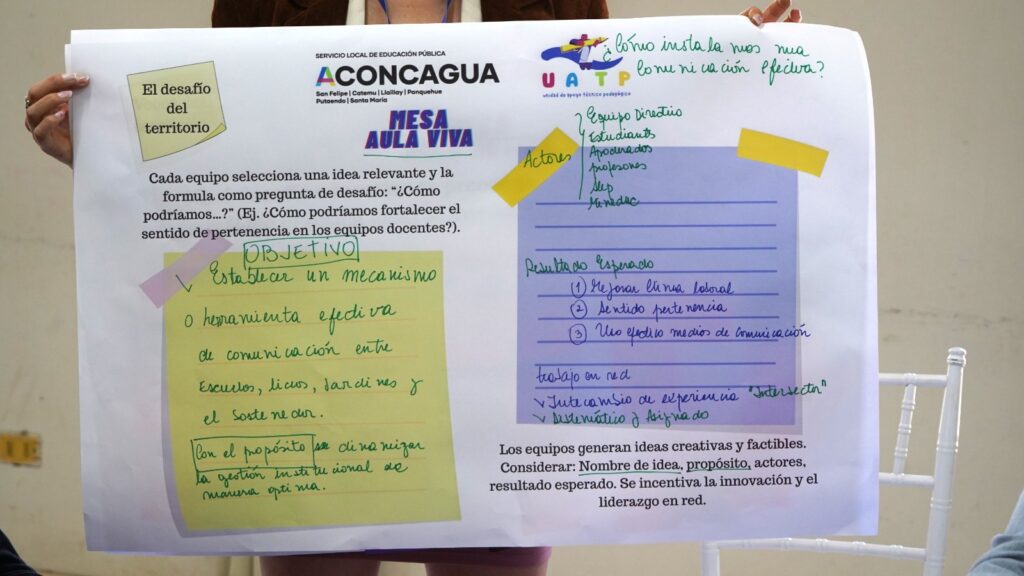 El desafío
del
territorio
SERVICIO LOCAL DE EDUCACIÓN PÚBLICA
ACONCAGUA
San Felipe | Catemu | Llaillay | Panquehue
Putaendo | Santa María
MESA
AULA VIVA
UATP
unidad de apoyo técnico pedagógico
¿Cómo instalamos una
Comunicación efectiva?
Cada equipo selecciona una idea relevante y la
formula como pregunta de desafío: “¿Cómo
podríamos...?” (Ej. ¿Cómo podríamos fortalecer el
sentido de pertenencia en los equipos docentes?).
OBJETIVO
Establecer un mecanismo
o herramienta efectiva
de comunicación entre
Escuelas, liceos, Jardines y
el Sostenedor.
Con el propósito de dinamizar
la gestión institucional de
manera optima.
Actores
Equipo Directivo
Estudiantes
Apoderados
profesores
Slep
Mineduc
Resultado Esperado
1 Mejorar Clima laboral
2 Sentido pertenencia
3 Uso efectivo medios de comunicación
trabajo en red
Intercambio de experiencia "Intersector"
Sistemático y Asignado
Los equipos generan ideas creativas y factibles.
Considerar: Nombre de idea, propósito, actores,
resultado esperado. Se incentiva la innovación y el
liderazgo en red.